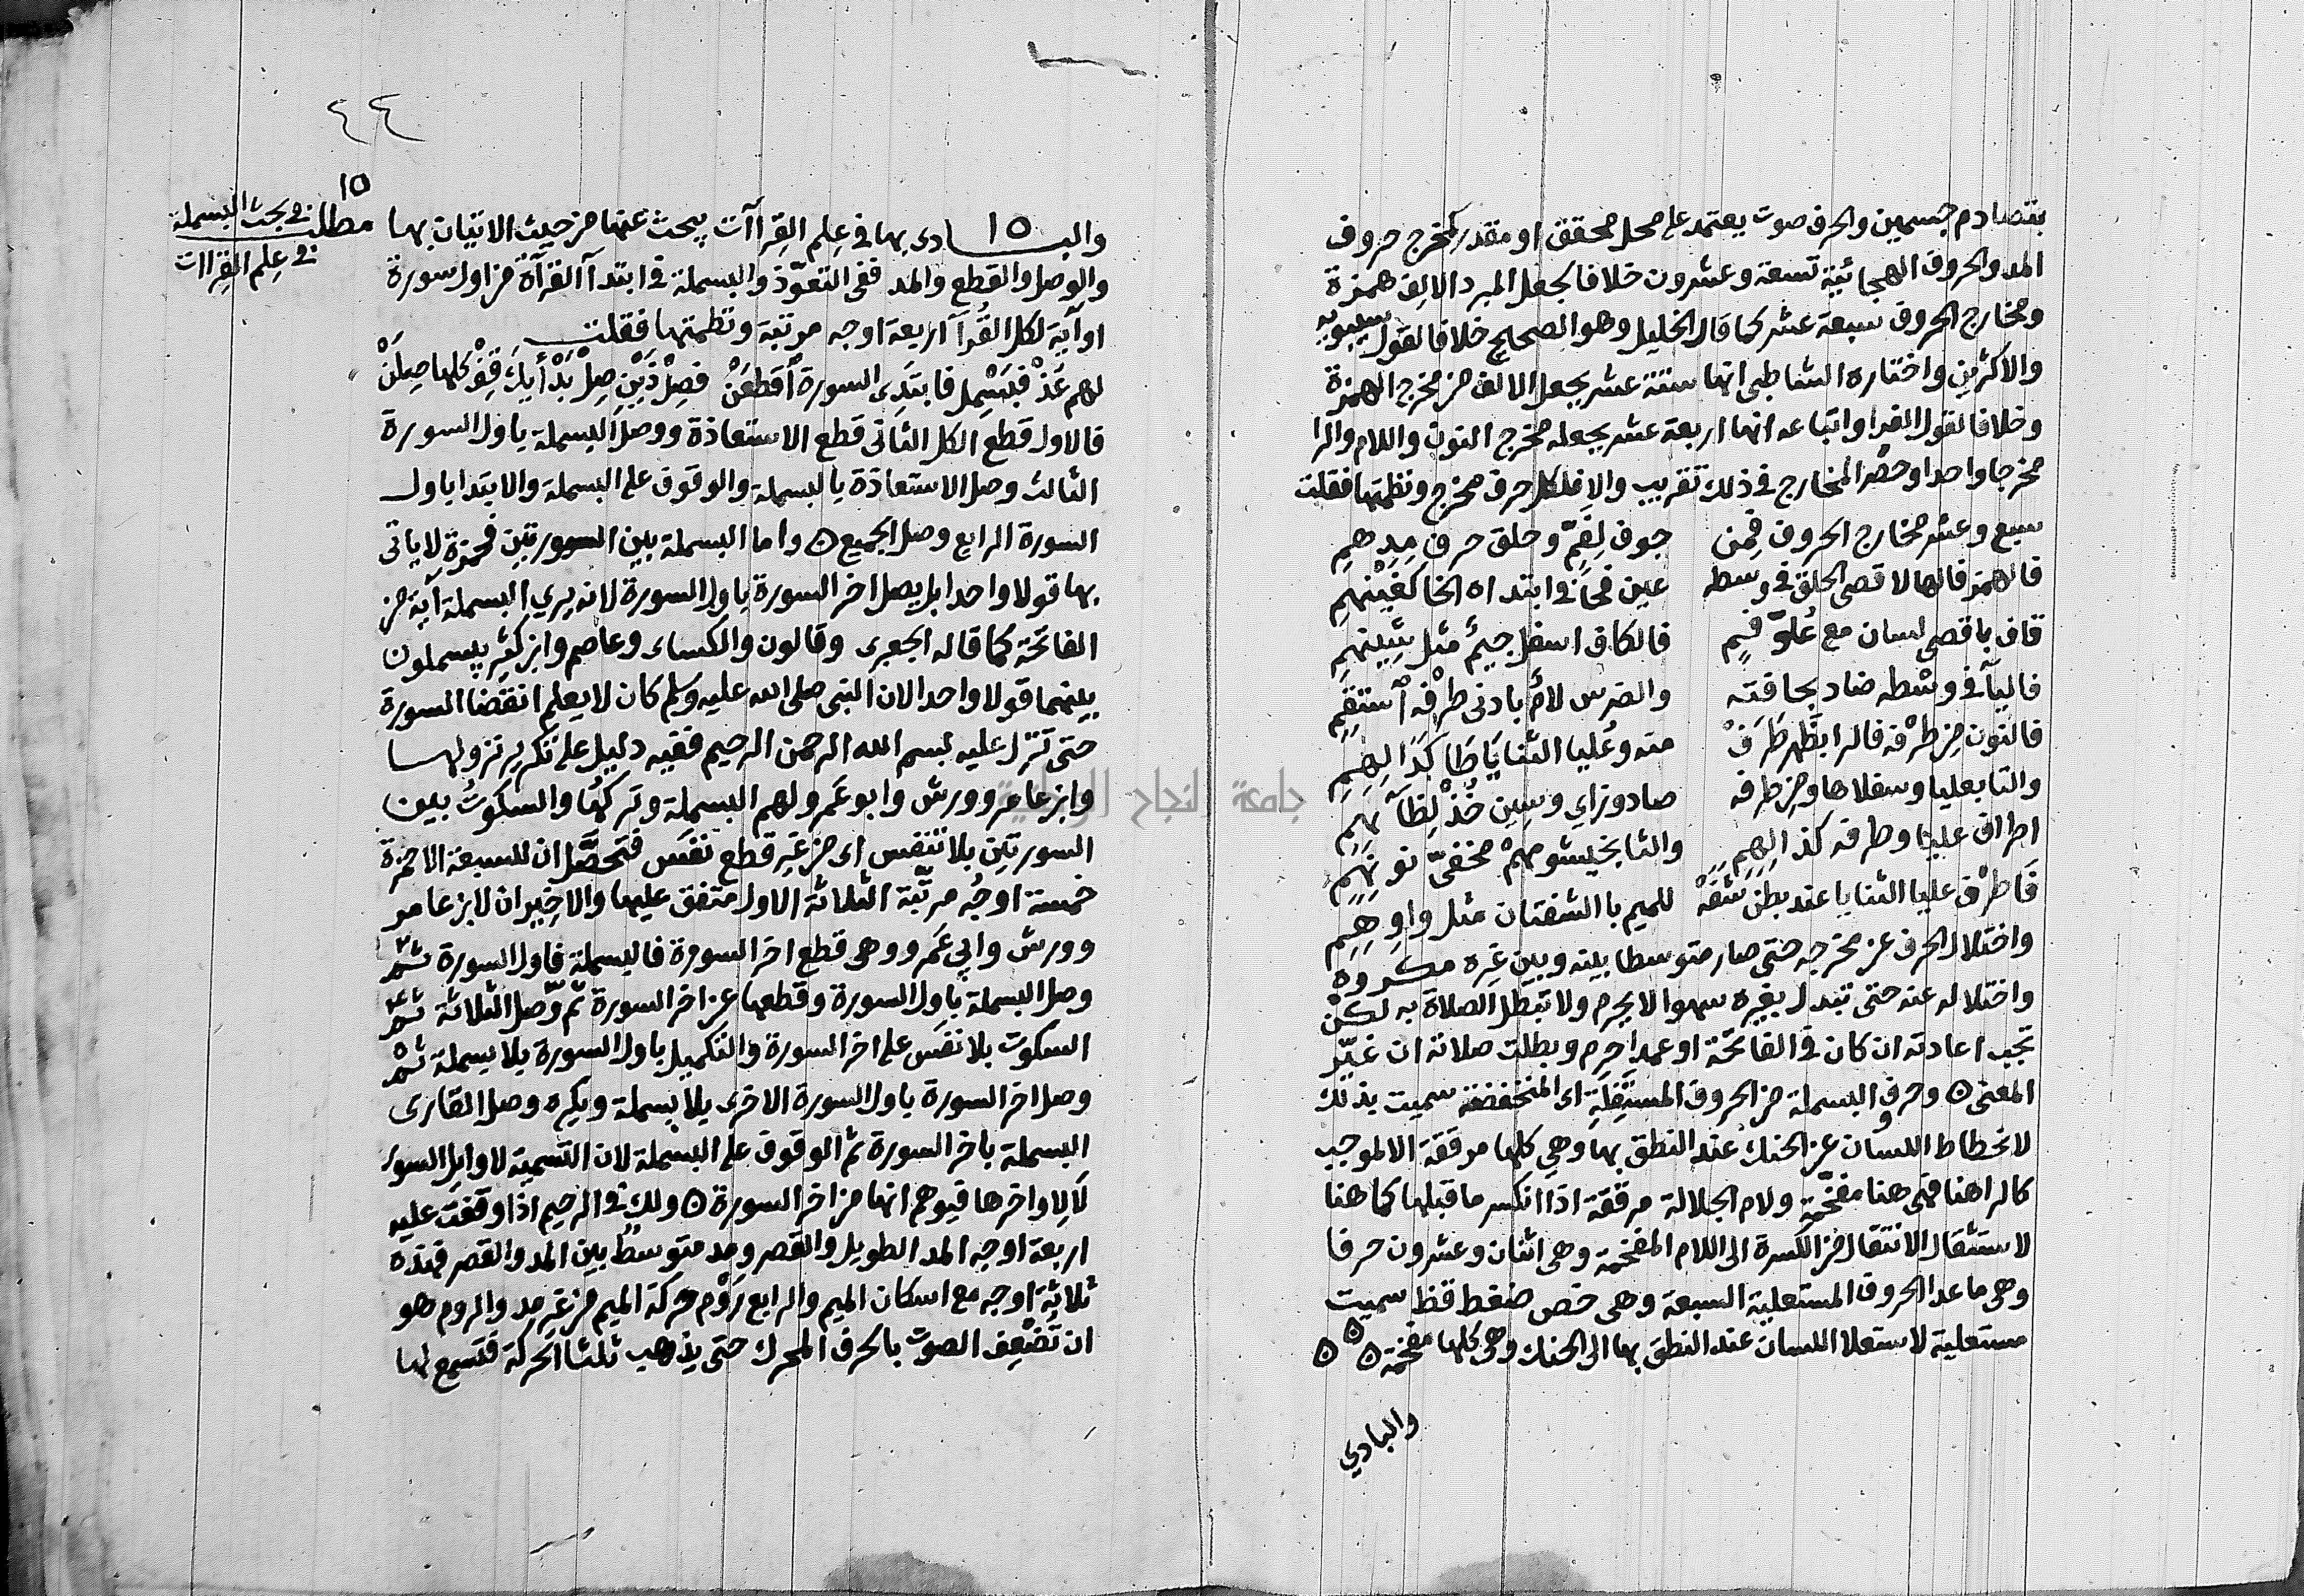 بتصادم جسمين والحرف صوت يعتمد على محل محقق او مقدر كمخرج حروف
المد والحروف الهجائية تسعة وعشرون خلافا لجعل المبرد الالف همزة
ومخارج الحروف سبعة عشر كما قال الخليل وهو الصحيح خلافا لقول سيبويه
والاكثرين واختاره الشاطبى انها ستة عشر بجعل الالف من مخرج الهمزة
وخلافا لقول الفرا واتباعه انها اربعة عشر بجعله مخرج النون واللام والرا
مخرجا واحدا وحصر المخارج في ذلك تقريب والا فلكل حرف مخرج ونظمتها فقلت
سبع وعشر مخارج الحروف فمن جوف لفم وحلق حرف مدهم
فالهمز فالها لاقصى الحلق في وسطه عين فحا في ابتداه الخا كغينهم
قاف باقصى لسان مع علو فم فالكاف اسفل جيم مثل شينهم
فاليآ في وسطه ضاد بحافته والضرس لام بادنى طرفه استقم
فالنون من طرفه فالرا بظهر طرف منه وعليا الثنايا طا كدالهم
والتا بعليا وسفلاها ومن طرفه صاد وزاي وسين خذ لظآئهم
اطراف عليا وطرفه كذالهم والثا بخيشومهم مخفي نونهم
فا طرف عليا الثنايا عند بطن شفه للميم با الشفتان مثل واوهم
واختلال الحرف عن مخرجه حتى صار متوسطا بينه وبين غيره مكروه
واختلاله عنه حتى تبدل بغيره سهوا لا يحرم ولا تبطل الصلاة به لكن
تجب اعادته ان كان في الفاتحة او عمدا حرم وبطلت صلاته ان غير
المعنى ٥ وحروف البسملة من الحروف المستفلة اى المنخفضة سميت بذلك
لانحطاط اللسان عن الحنك عند النطق بها وهي كلها مرققة الا لموجب
كالراهنا فهى هنا مفخمة ولام الجلالة مرققة اذا انكسر ما قبلها كما هنا
لاستثقال الانتقال من الكسرة الى اللام المفخمة وهى اثنان وعشرون حرفا
وهى ما عدا الحروف المستعلية السبعة وهى خص ضغط قظ سميت
مستعلية لاستعلا اللسان عند النطق بها الى الحنك وهى كلها مفخمة ٥ ٥ ٥
والبادي
٤٤
١٥
مطلب في بحث البسملة
في علم القراات
١٥
والبادى بها في علم القراآت يبحث عنها من حيث الاتيان بها
والوصل والقطع والمد ففى التعوذ والبسملة في ابتدآ القرآة من اول سورة
او آية لكل القرآ اربعة اوجه مرتبة ونظمتها فقلت
لهم عذ فبسمل فابتدى السورة اقطعن فصل ذين صل بدأ يك قف كلها صلن
فالاول قطع الكل الثانى قطع الاستعاذة ووصل البسملة باول السورة
الثالث وصل الاستعاذة بالبسملة والوقوف على البسملة والابتدا باول
السورة الرابع وصل الجميع ٥ واما البسملة بين السورتين فحمزة لا ياتى
بها قولا واحدا بل يصل اخر السورة باول السورة لانه يرى البسملة آية من
الفاتحة كما قاله الجعبرى وقالون والكساء وعاصم وابن كثير يبسملون
بينهما قولا واحدا لان النبى صلى الله عليه وسلم كان لا يعلم انقضا السورة
حتى تنزل عليه بسم الله الرحمن الرحيم ففيه دليل على تكرير نزولها
وابن عامر وورش وابو عمر ولهم البسملة وتركها والسكوت بين
السورتين بلا تنفس اى من غير قطع نفس فتحصل ان للسبعة الا حمزة
خمسة اوجه مرتبة الثلاثة الاول متفق عليها والاخيران لابن عامر
وورش وابي عمرو وهى قطع اخر السورة فالبسملة فاول السورة ثم
وصل البسملة باول السورة وقطعها عن اخر السورة ثم وصل الثلاثة ثم
السكوت بلا نفس على اخر السورة والتكميل باول السورة بلا بسملة ثم
وصل اخر السورة باول السورة الاخرى بلا بسملة ويكره وصل القارى
البسملة باخر السورة ثم الوقوف على البسملة لان التسمية لاوايل السور
لا لاواخرها فيوهم انها من اخر السورة ٥ ولك في الرحيم اذا وقفت عليه
اربعة اوجه المد الطويل والقصر ومد متوسط بين المد والقصر فهذه
ثلاثة اوجه مع اسكان الميم والرابع روم حركة الميم من غير مد والروم هو
ان تضعف الصوت بالحرف المحرك حتى يذهب ثلثا الحركة فتسمع لها
جامعة النجاح الوطنية